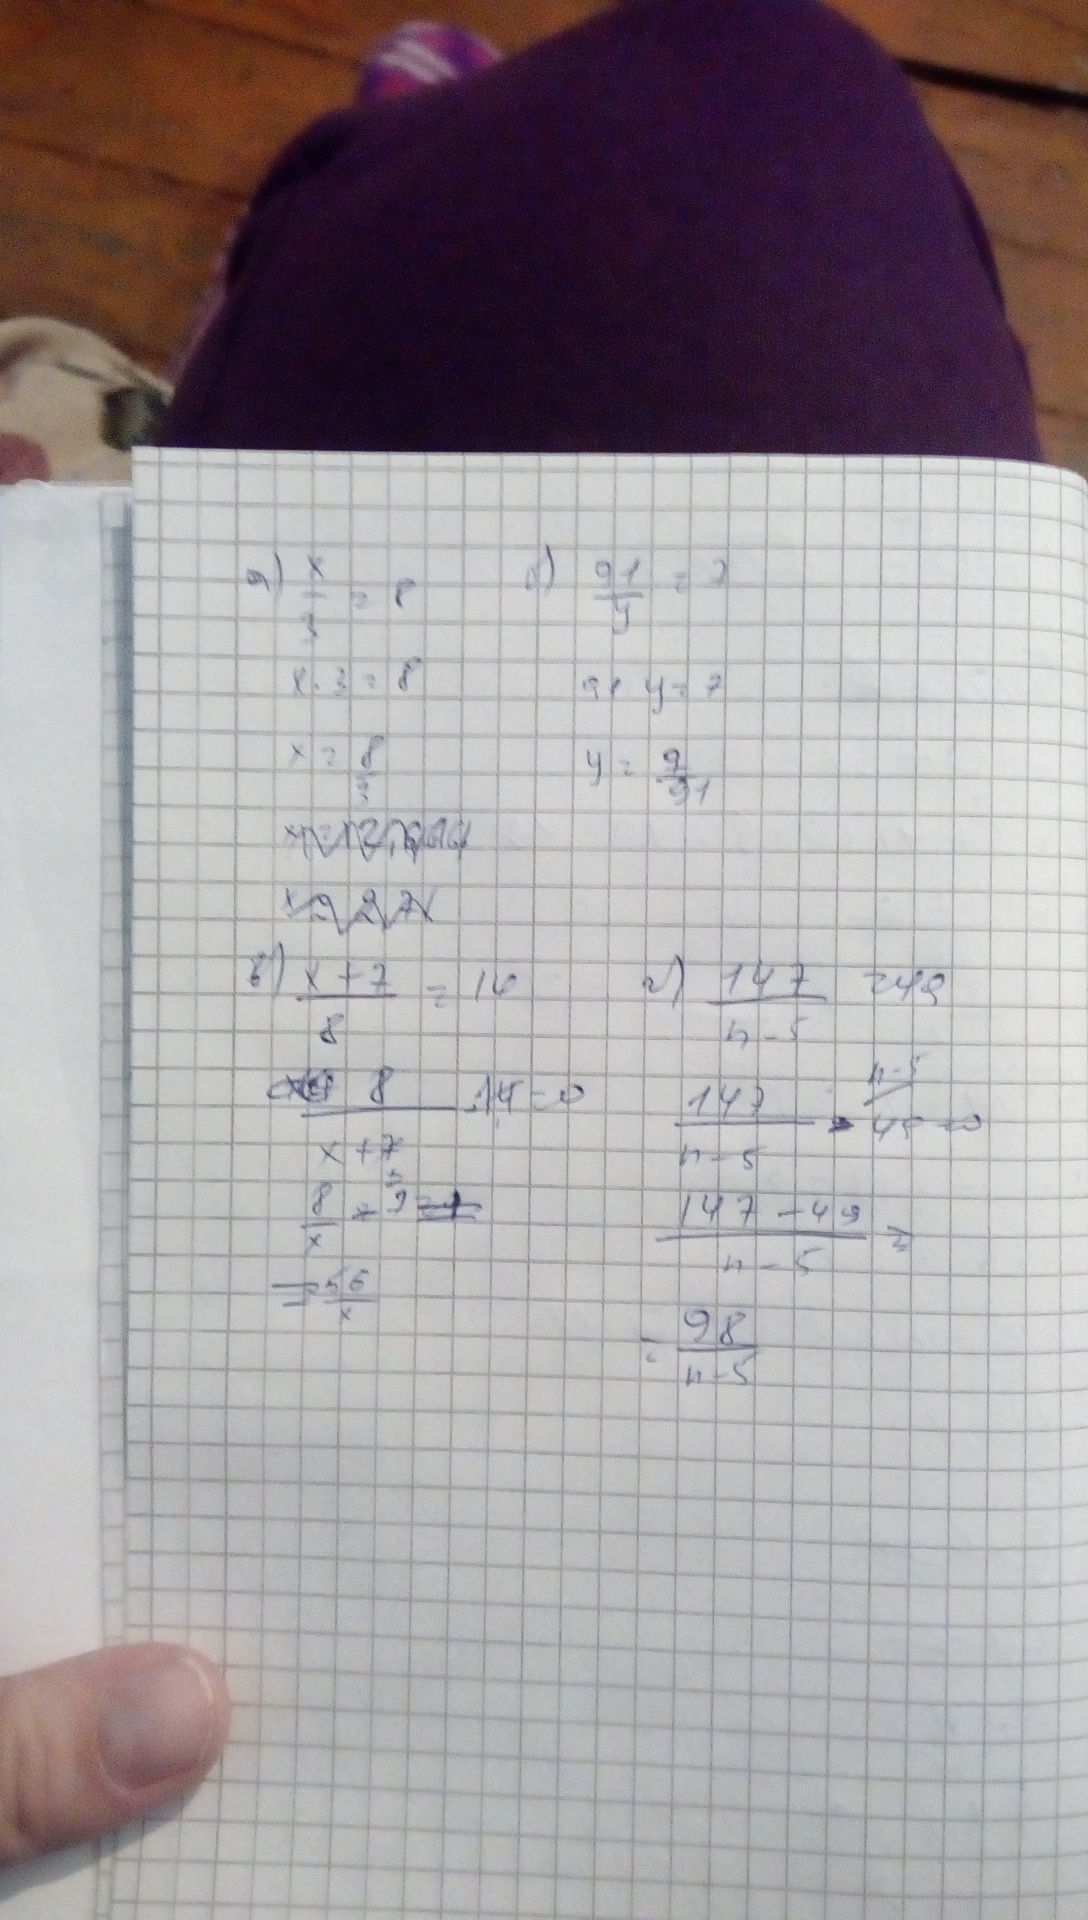 а) x/3 = 8
x · 3 = 8
x = 8/3
б) 91/y = 7
91 y = 7
y = 9/91
в) (x + 7)/8 = 14
8/(x + 7)
8/x
= 56/x
г) 147/(n - 5) = 49
147/(n - 5)
n - 5
(147 - 49)/(n - 5) =
= 98/(n - 5)